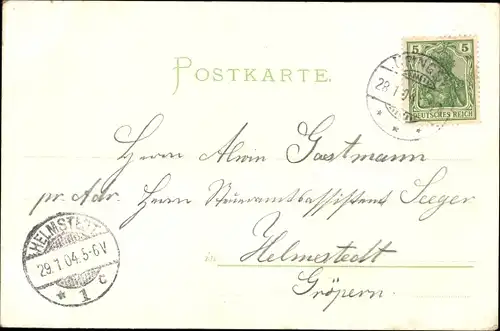 POSTKARTE.
5 5
DEUTSCHES REICH
28.1.04
Herrn Alwin Gastmann
pr. Adr. Herrn Steueramtsassistent Seeger
in Helmstedt
Gröpern.
HELMSTEDT
29.1.04.5-6V
* 1 c